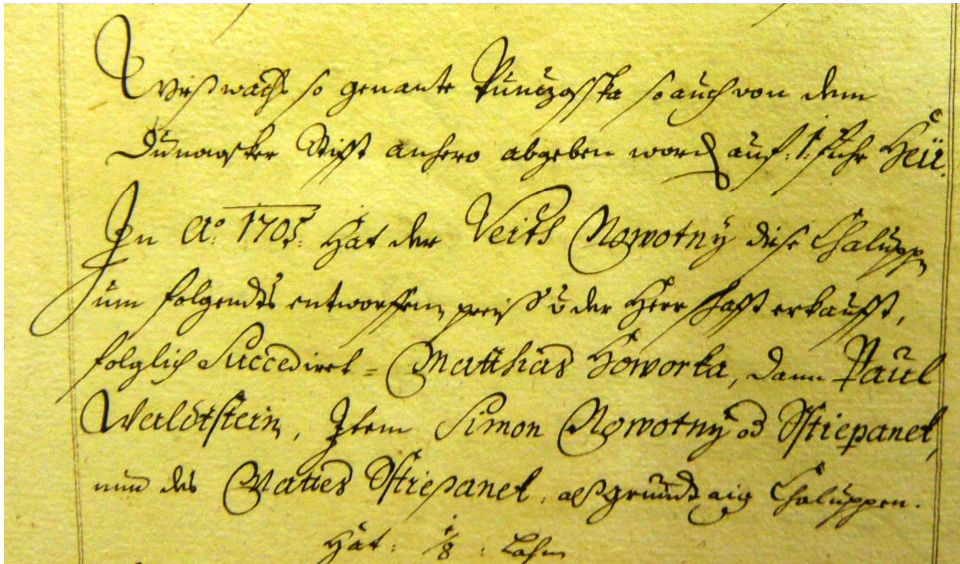 Wißwachs so genante Punczoska so auch von dem
Dunawsker Stifft anhero abgeben word auf: 1: fuhr Heü.
In Ao: 1705: hat der Veith Nowotný diese Chaluppn
um folgendts entworffenen preiß v der Herrschafft erkaufft,
folglich Succedirt = Matthias Howorka, dann Paul
Werlotstein, Item Simon Nowotný od Sstiepanek,
nun des Maties Sstiepanek, alß grundt aig Chaluppen.
Hat: 1/8: Lahn